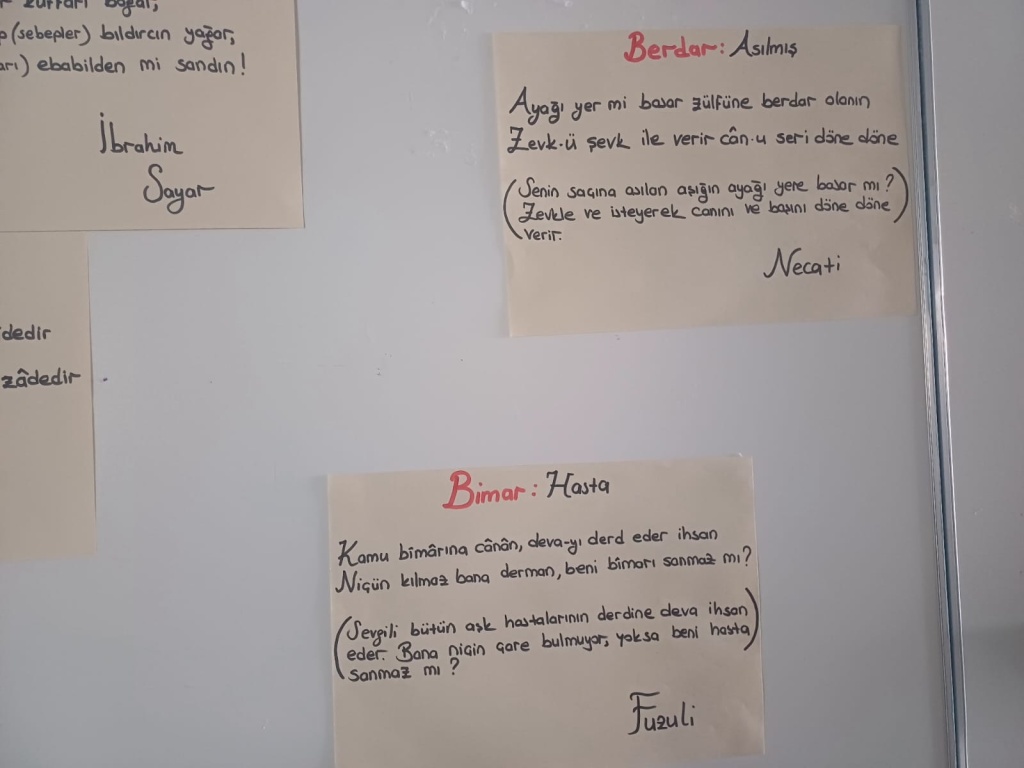 (sebepler) bıldırcın yağar,
ebabilden mi sandın!
İbrahim
Sayar
dedir
zâdedir
Berdar: Asılmış
Ayağı yer mi basar zülfüne berdar olanın
Zevk-ü şevk ile verir cân-u seri döne döne
(Senin saçına asılan aşığın ayağı yere basar mı?
Zevkle ve isteyerek canını ve başını döne döne
verir.)
Necati
Bimar: Hasta
Kamu bîmârına cânân, deva-yı derd eder ihsan
Niçün kılmaz bana derman, beni bîmarı sanmaz mı?
(Sevgili bütün aşk hastalarının derdine deva ihsan
eder. Bana niçin çare bulmuyor, yoksa beni hasta
sanmaz mı?)
Fuzuli